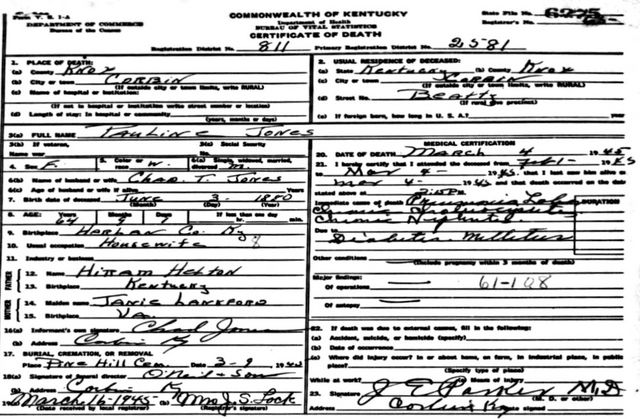 Form V. S. 1-A
DEPARTMENT OF COMMERCE
Bureau of the Census
COMMONWEALTH OF KENTUCKY
Department of Health
BUREAU OF VITAL STATISTICS
CERTIFICATE OF DEATH
State File No. 6275
Registrar's No.
Registration District No. 811 Primary Registration District No. 2581
1. PLACE OF DEATH:
(a) County Knox
(b) City or town Corbin
(If outside city or town limits, write RURAL)
(c) Name of hospital or institution:
(If not in hospital or institution write street number or location)
(d) Length of stay: In hospital or community
(years, months or days)
2. USUAL RESIDENCE OF DECEASED:
(a) State Kentucky (b) County Knox
(c) City or town Corbin
(If outside city or town limits, write RURAL)
(d) Street No. Beatty
(If rural give precinct)
(e) If foreign born, how long in U. S. A.? years
3(a) FULL NAME Pauline Jones
3(b) If veteran, 3(c) Social Security
Name war No.
4. Sex F 5. Color or race W. 6(a) Single, widowed, married, divorced m.
6(b) Name of husband or wife Chad. T. Jones
6(c) Age of husband or wife if alive Years
7. Birth date of deceased June 3- 1880
(Month) (Day) (Year)
8. AGE: Years 64 Months 9 Days If less than one day
hr. min.
9. Birthplace Harlan Co. Ky
10. Usual occupation Housewife 8
11. Industry or business
FATHER
12. Name Hiram Helton
13. Birthplace Kentucky
MOTHER
14. Maiden name Janie Lankford
15. Birthplace Va.
16(a) Informant's own signature Chad Jones
(b) Address Corbin Ky
17. BURIAL, CREMATION, OR REMOVAL
Place Pine Hill Cem. Date 3-9 1945
18(a) Signature of funeral director O'Neil & Son
(b) Address Corbin Ky
19(a) March 16-1945- (b) Mrs J. S. Lock
(Date received by local registrar) (Registrar's signature)
MEDICAL CERTIFICATION
20. DATE OF DEATH March 4 1945
21. I hereby certify that I attended the deceased from Feb 1- 1945
to Mar 4- 1945, that I last saw him alive on
mar 4- 1945 and that death occurred on the date
stated above at
Immediate cause of death Pneumonia Lobar
DURATION
Chronic Nephritis
Due to
Diabetes Mellitus
Other conditions
(Include pregnancy within 3 months of death)
Major findings:
Of operations 61-108
Of autopsy
22. If death was due to external causes, fill in the following:
(a) Accident, suicide, or homicide (specify)
(b) Date of occurrence
(c) Where did injury occur? In or about home, on farm, in industrial place, in public place?
(Specify type of place)
While at work? Means of injury
23. Signature J E Parker M.D.
Address Corbin Ky